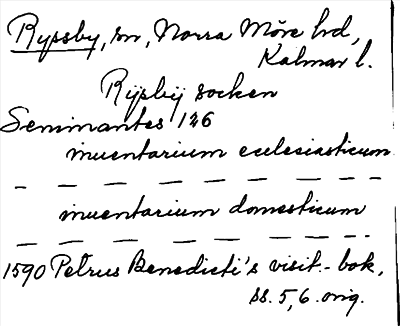 Ryssby, sn, Norra Möre hd,
Kalmar l.
Rijsbij socken
Seminantes 126
inuentarium ecclesiasticum
— — — — — — — — —
inuentarium domesticum
— — — — — — — — —
1590 Petrus Benedicti's visit.-bok,
ss. 5, 6. orig.